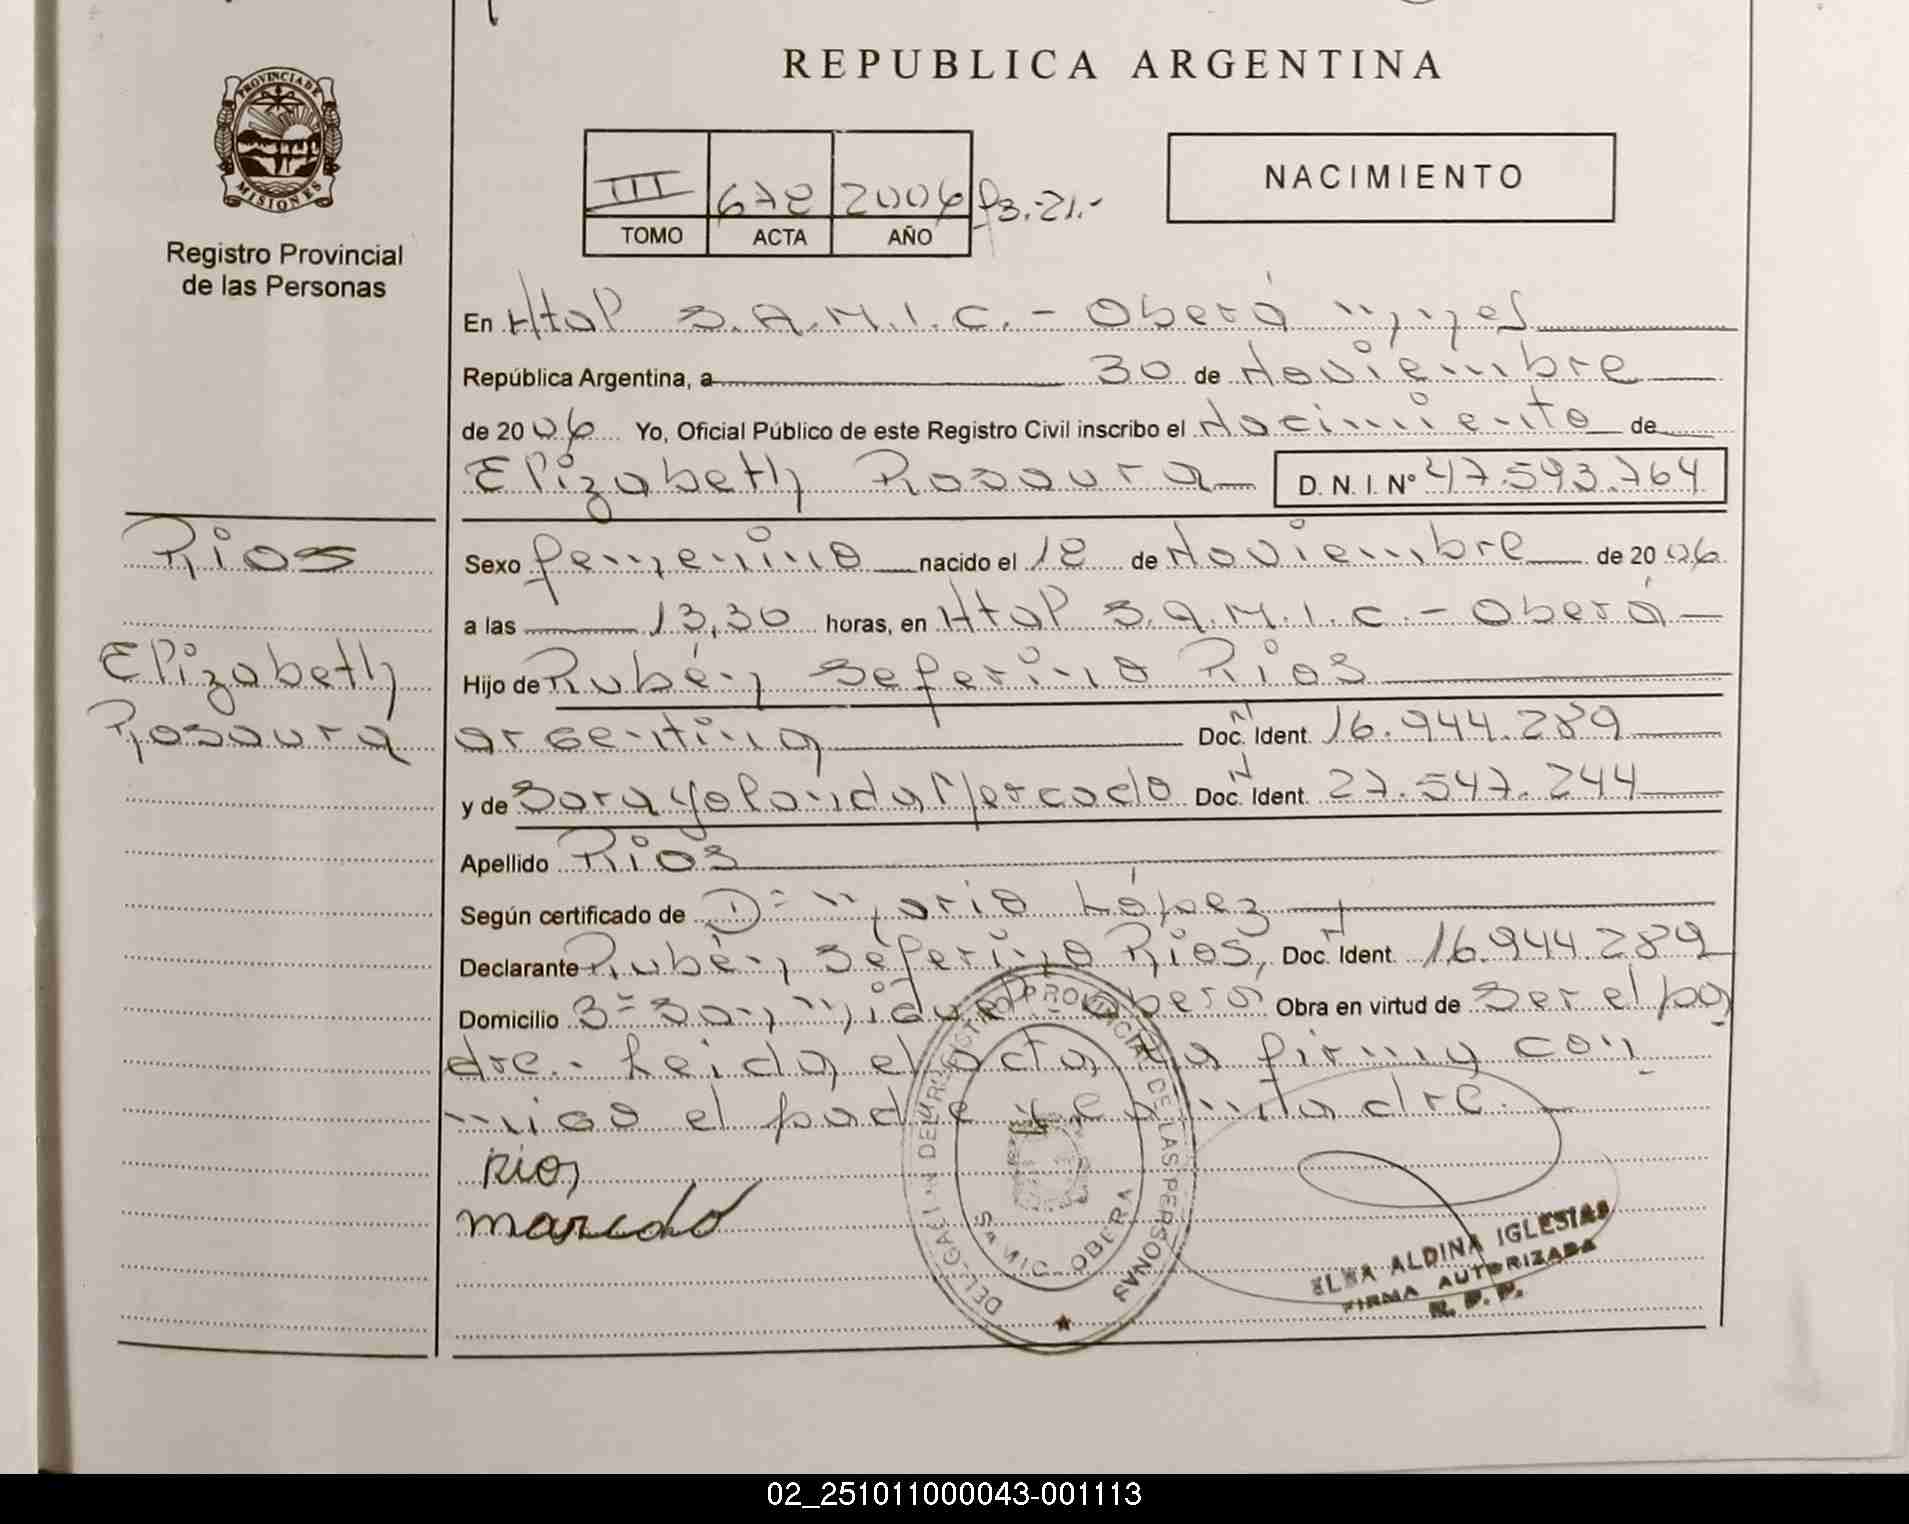 REPUBLICA ARGENTINA
PROVINCIA DE
MISIONES
Registro Provincial
de las Personas
III 678 2006 fs. 21.-
TOMO ACTA AÑO
NACIMIENTO
En Htal S.A.M.I.C. - Oberá Mnes
República Argentina, a 30 de Noviembre
de 2006 Yo, Oficial Público de este Registro Civil inscribo el Nacimiento de
Elizabeth Rosaura D. N. I. Nº 47.593.764
Rios
Elizabeth
Rosaura
Sexo femenino nacido el 18 de Noviembre de 2006
a las 13,30 horas, en Htal S.A.M.I.C. - Oberá
Hijo de Rubén Seferino Rios
argentina Doc. Ident. 16.944.289
y de Sara Yolanda Mercado Doc. Ident. 27.547.244
Apellido Rios
Según certificado de Dr Mario López
Declarante Rubén Seferino Rios, Doc. Ident. 16.944.289
Domicilio Bº San Miguel - Oberá Obra en virtud de Ser el pa
dre.- Leida el acta la firma con
migo el padre y la madre.
Rios
marcdo
DELEGACION DEL REGISTRO PROVINCIAL DE LAS PERSONAS
SAMIC OBERA
ELBA ALDINA IGLESIAS
FIRMA AUTORIZADA
R. P. P.
02_251011000043-001113